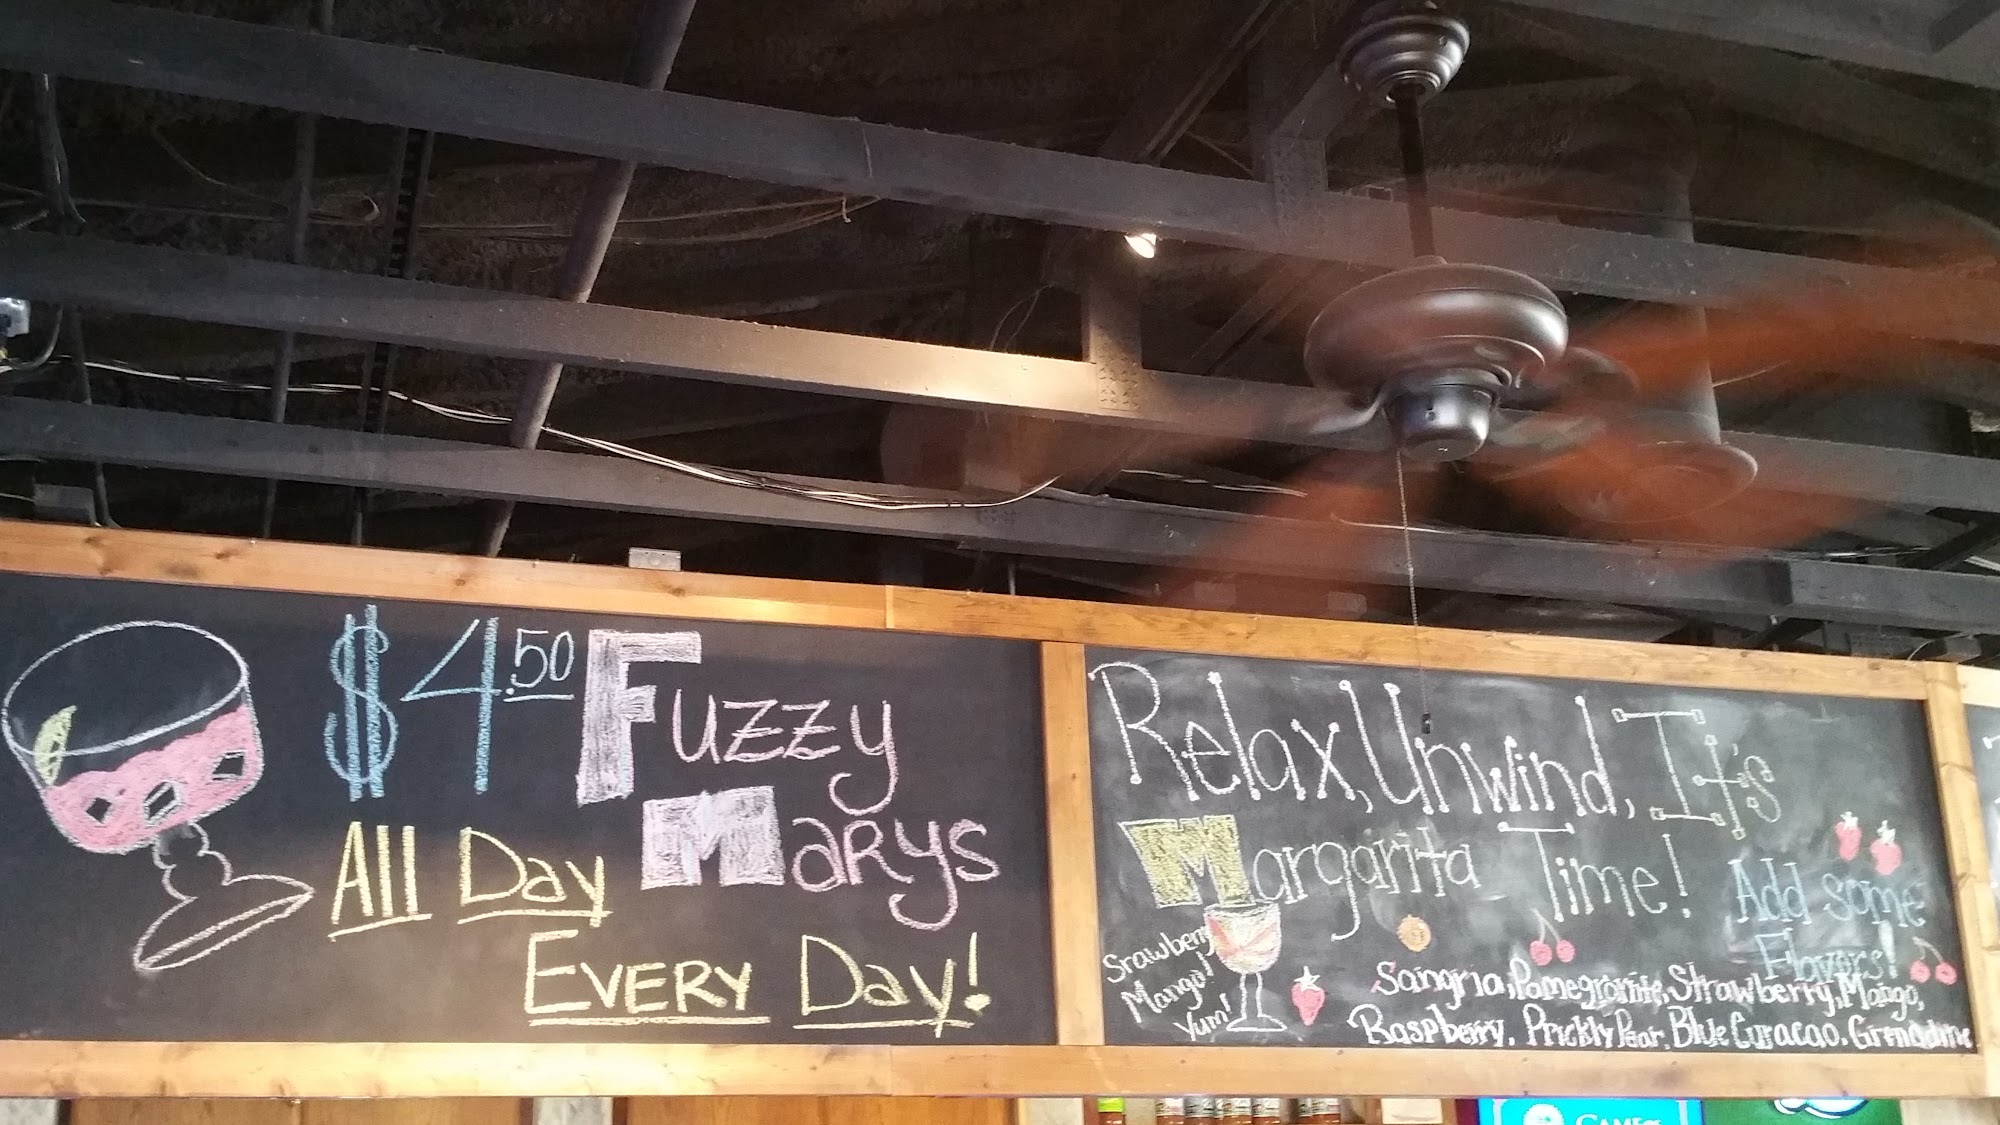 $4.50 Fuzzy
Marys
All Day
Every Day!
Relax, Unwind, It's
Margarita Time!
Add some
Flavors!
Srawberry
Mango!
Yum!
Sangria, Pomegranite, Strawberry, Mango,
Raspberry, Prickly Pear, Blue Curacao, Grenadine